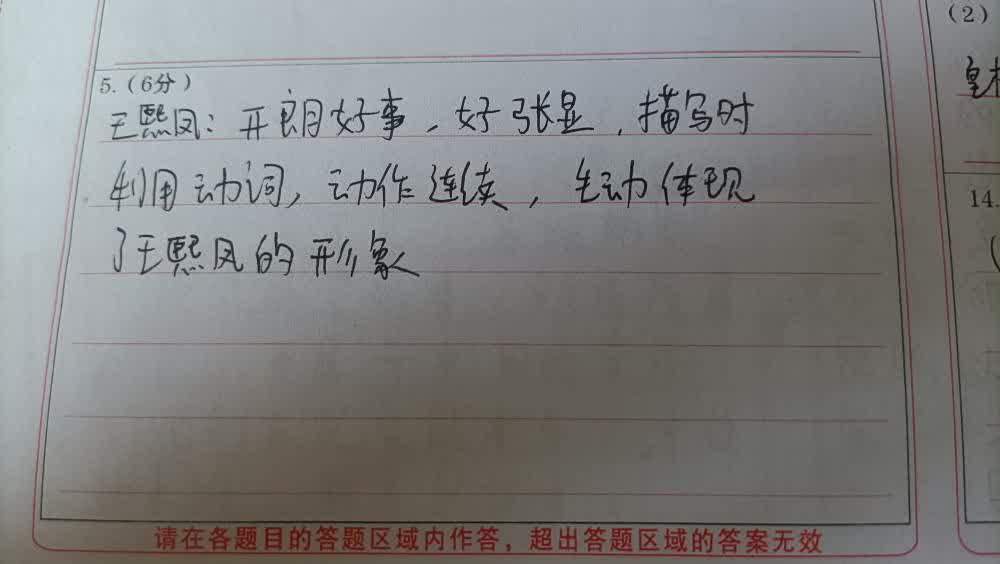 (2)
5.(6分)
王熙凤：开朗好事，好张显，描写时
利用动词，动作连续，生动体现
了王熙凤的形象
14.
请在各题目的答题区域内作答，超出答题区域的答案无效